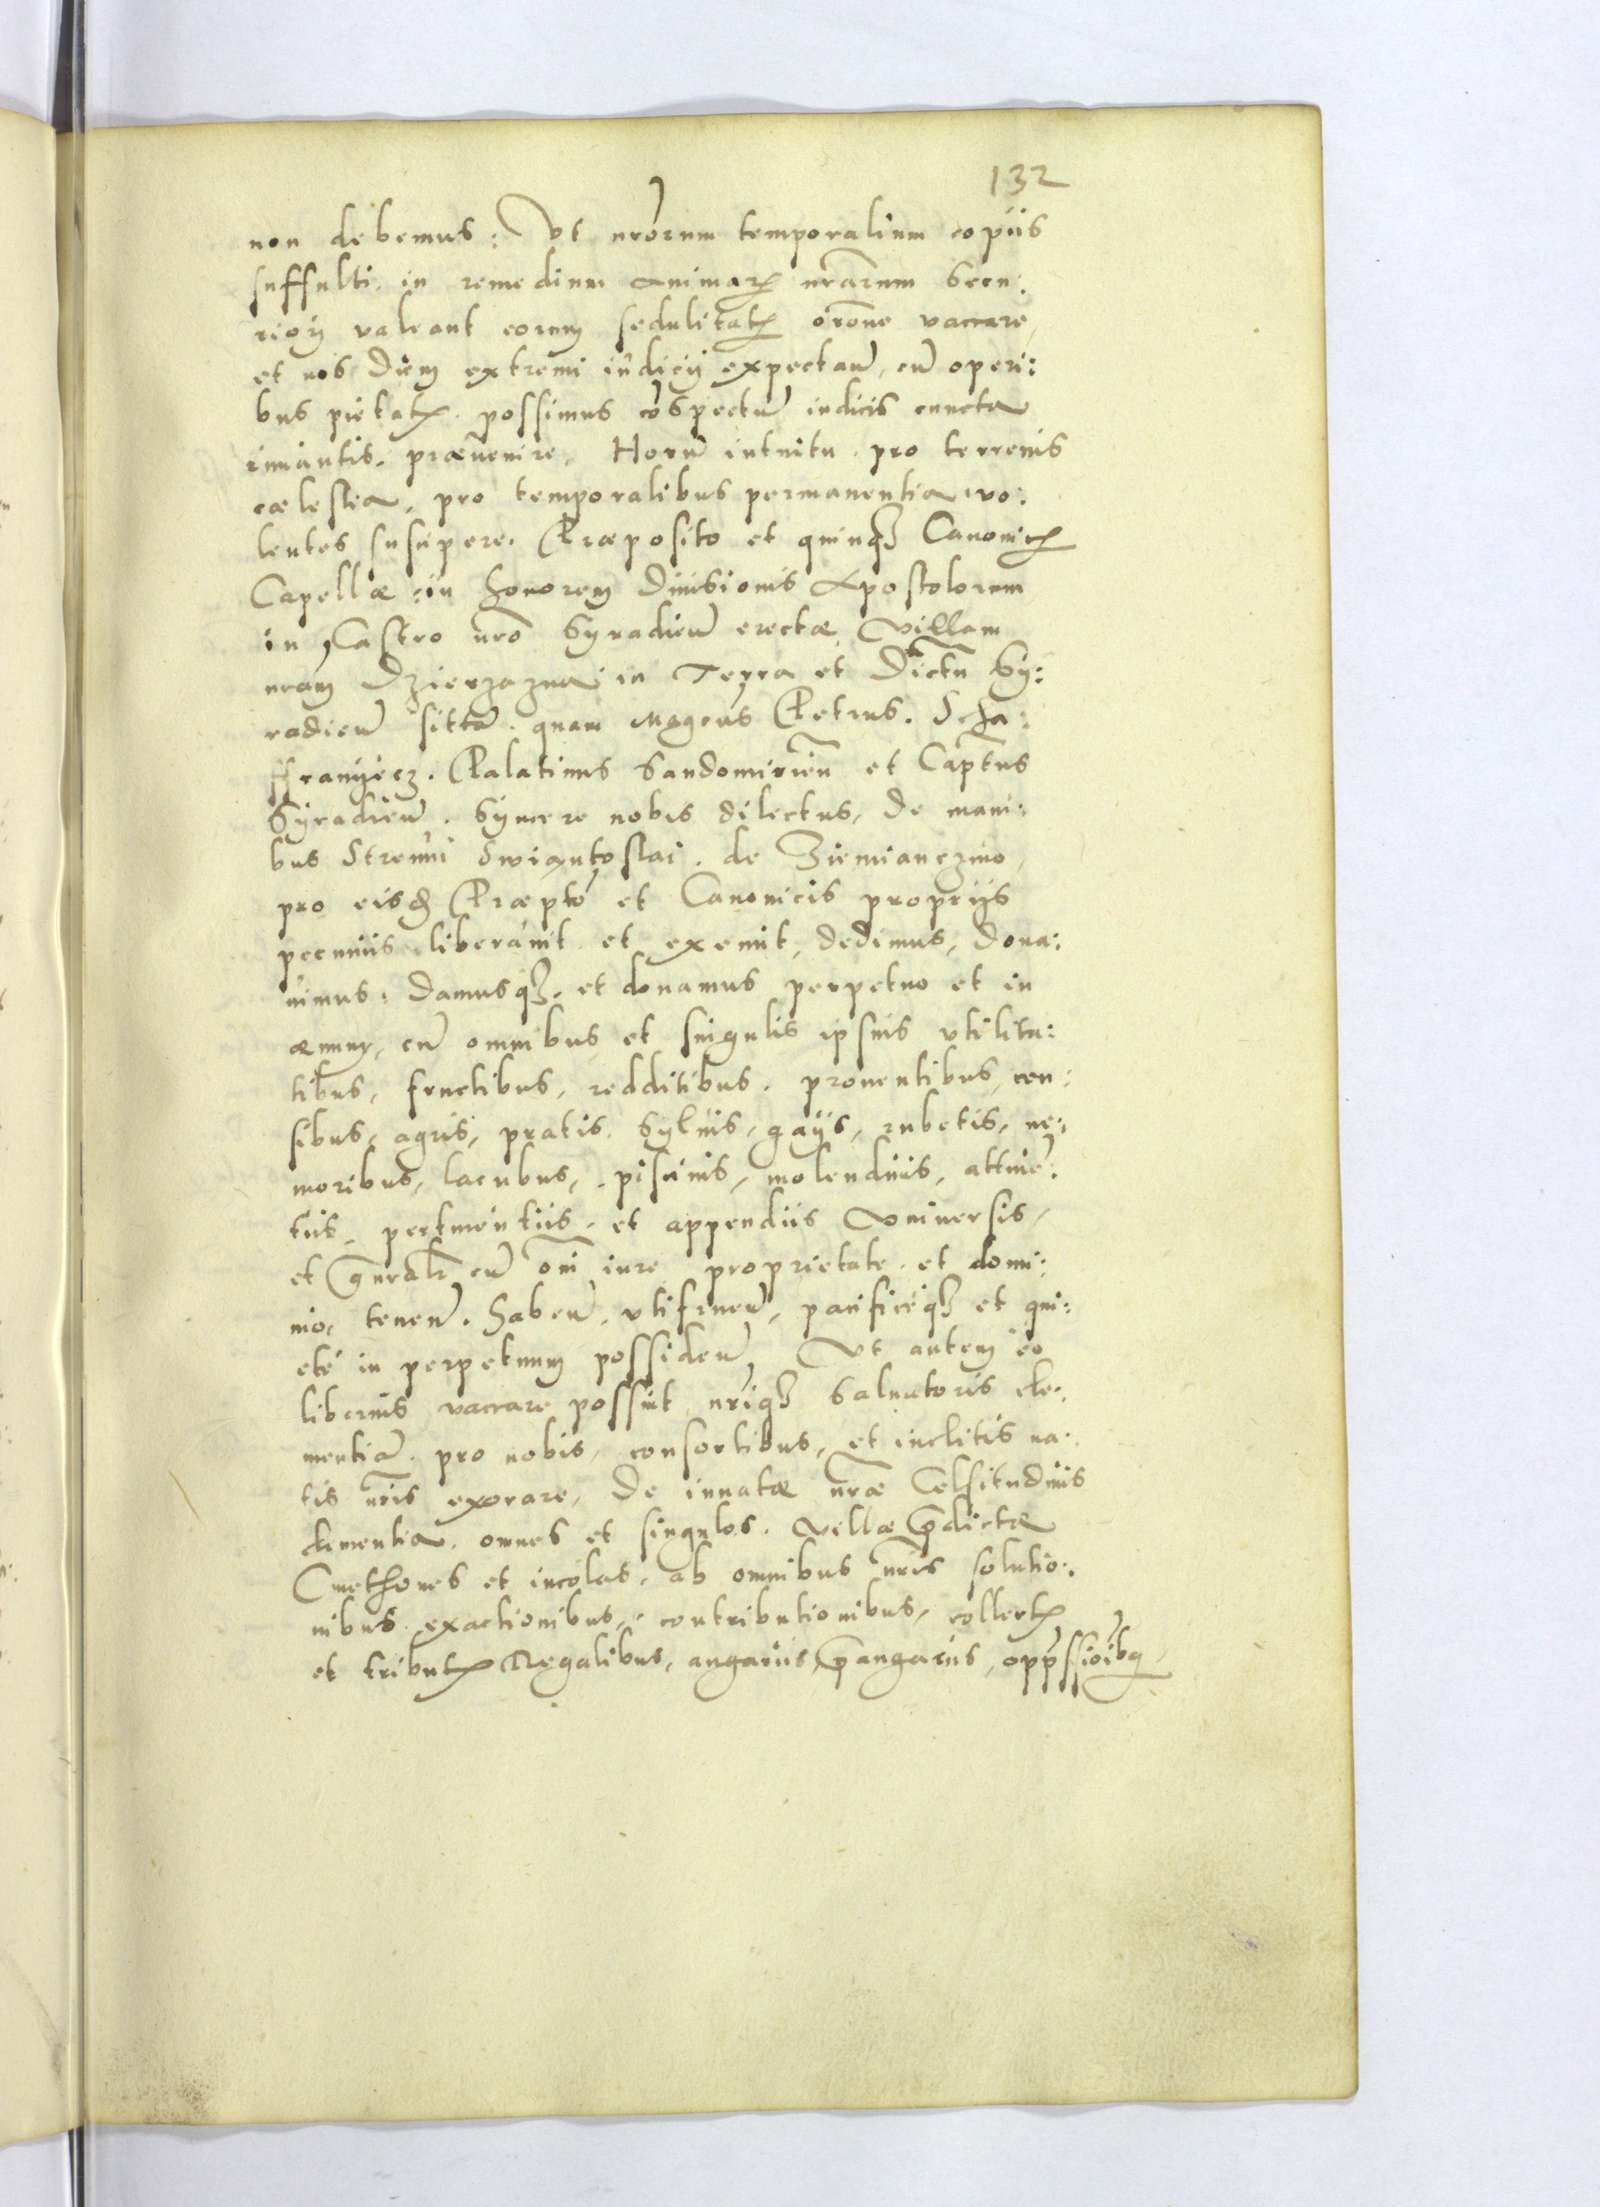 132
non debemus: Vt nrõrum temporalium copiis
suffulti, in remedium animarꝫ nrãrum Secu:
rioꝫ valeant eorum sedulitatꝫ orõne vaccare,
et nos diem extremi iudicij expectan̄, cū operi:
bus pietatꝫ possimus cōspectū iudicis cuncta
rimantis, præuenire, Horū intuitu pro terrenis
cælestia, pro temporalibus permanentia vo:
lentes suscipere. Præposito et quinqꝫ Canonicꝫ
Capellæ in honorem Diuisionis Apostolorum
in Castro nrō Syradien̄ erectæ Villam
nram Dzierzazna in Terra et Dictu Sy:
radien̄ sittā. quam Magcus Petrus. Scha:
ffranyecz. Palatinus Sandomirien̄ et Captus
Syradien̄. Syncere nobis dilectus, de mani:
bus Strenui Swiantoslai. de Ziemianczino,
pro eisd Præpto et Canonicis propriis
pecuniis liberauit et exemit, dedimus, dona:
uimus, damusqꝫ. et donamus perpetuo et in
æuum, cū omnibus et singulis ipsius vtilita:
tibus, fructibus, redditibus. prouentibus, cen:
sibus, agris, pratis, Syluis, gays, rubetis, ne:
moribus, lacubus, piscinis, molendinis, attinē:
tiis, pertinentiis, et appendiis Vniuersis,
et gnralr cū oni iure proprietate et domi:
nio, tenen̄. haben̄, vtifruen̄, pacificeqꝫ et qui:
eté in perpetuum possiden̄, Vt autem eo
liberius vaccare possint nriqꝫ Saluatoris cle:
mentiā. pro nobis, consortibus, et inclitis na:
tis nris exorare, de innatæ nræ Celsitudinis
clementia. omnes et singulos. Villæ p̄dictæ
Cmethones et incolas, ab omnibus nris solutio:
nibus exactionibus, contributionibus, collectꝫ
et tributꝫ Regalibus, angariis p̄angariis, opp̄ssioibꝫ